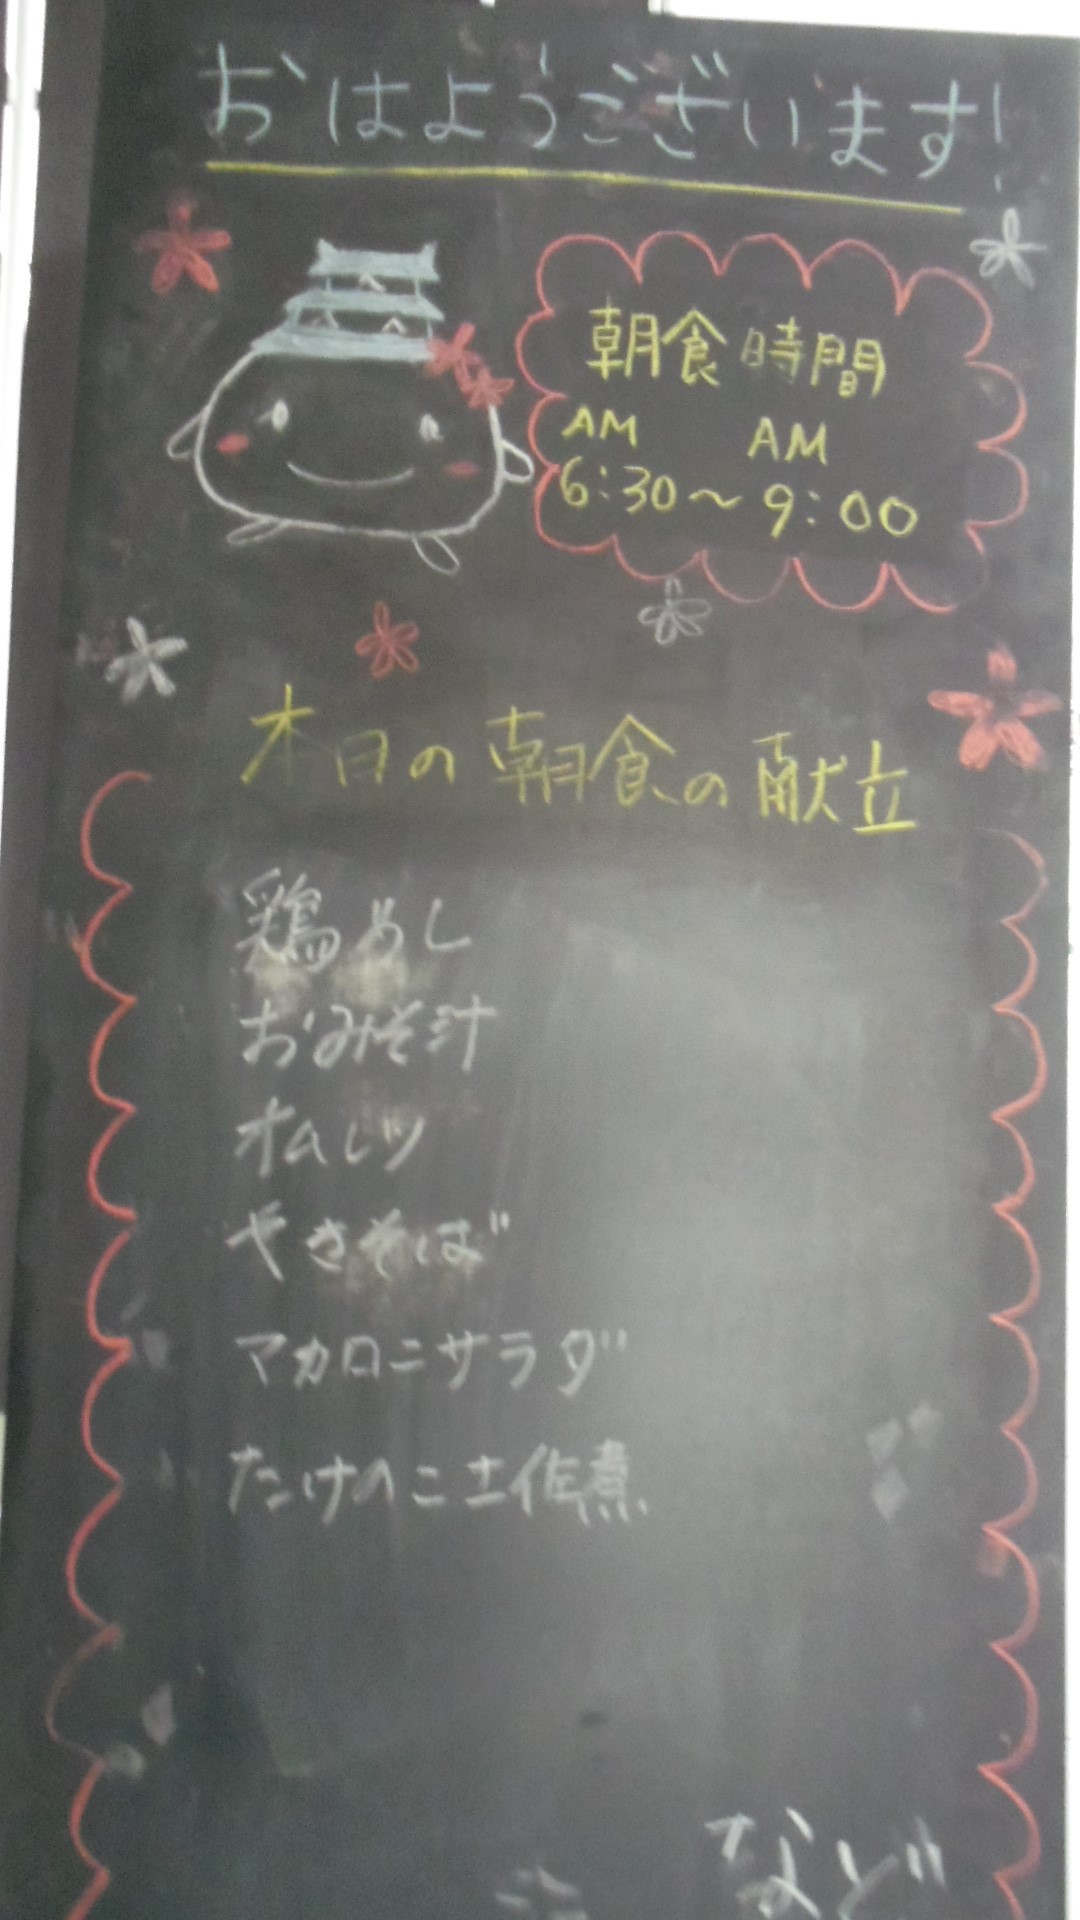 おはようございます!
朝食時間
AM AM
6:30〜9:00
本日の朝食の献立
鶏めし
おみそ汁
オムレツ
やきそば
マカロニサラダ
たけのこ土佐煮
など